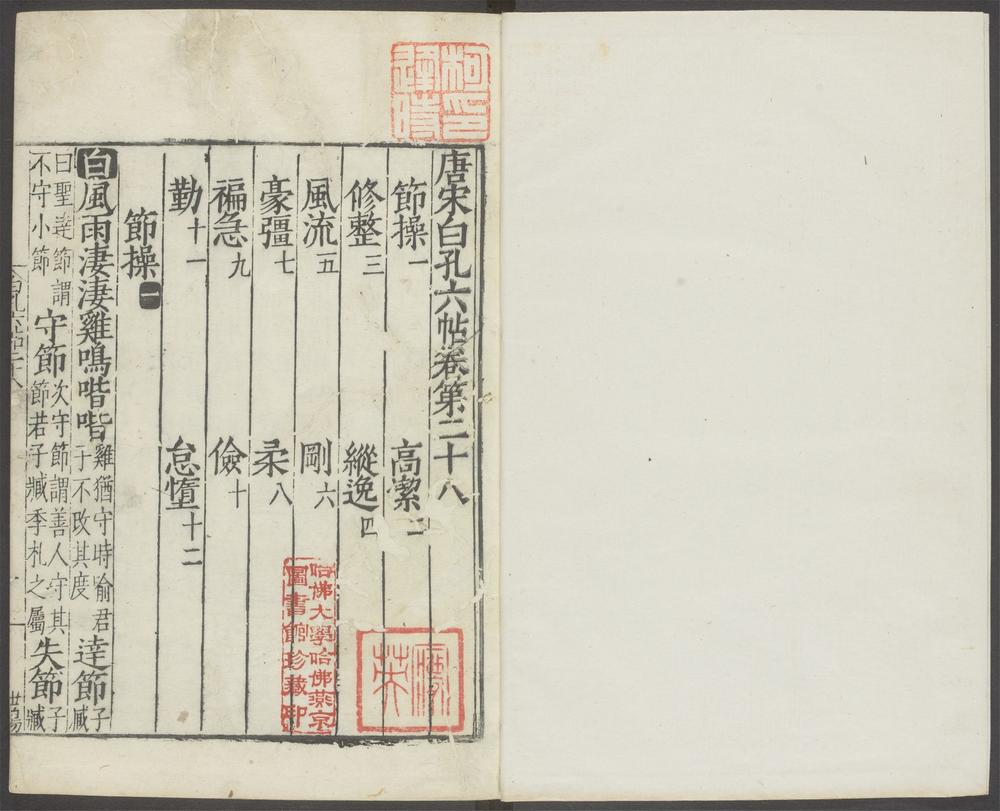 唐宋白孔六帖卷第二十八
節操一 高潔二
修整三 縱逸四
風流五 剛六
豪彊七 柔八
褊急九 儉十
勤十一 怠惰十二
節操一
白風雨淒淒雞鳴喈喈雞猶守時喻君
于不改其度達節子
臧
曰聖達節謂
不守小節守節次守節謂善人守其
節若子臧季札之屬失節子
臧
哈佛大學哈佛燕京
圖書館珍藏印